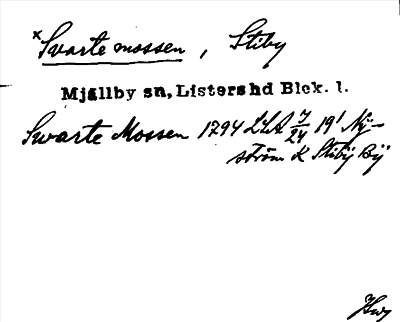 ×Svarte mossen, Stiby
Mjällby sn, Listers hd Blek. l.
Swarte Mossen 1794 LLA 7/24 19¹ Ny-
ström K Stiby By